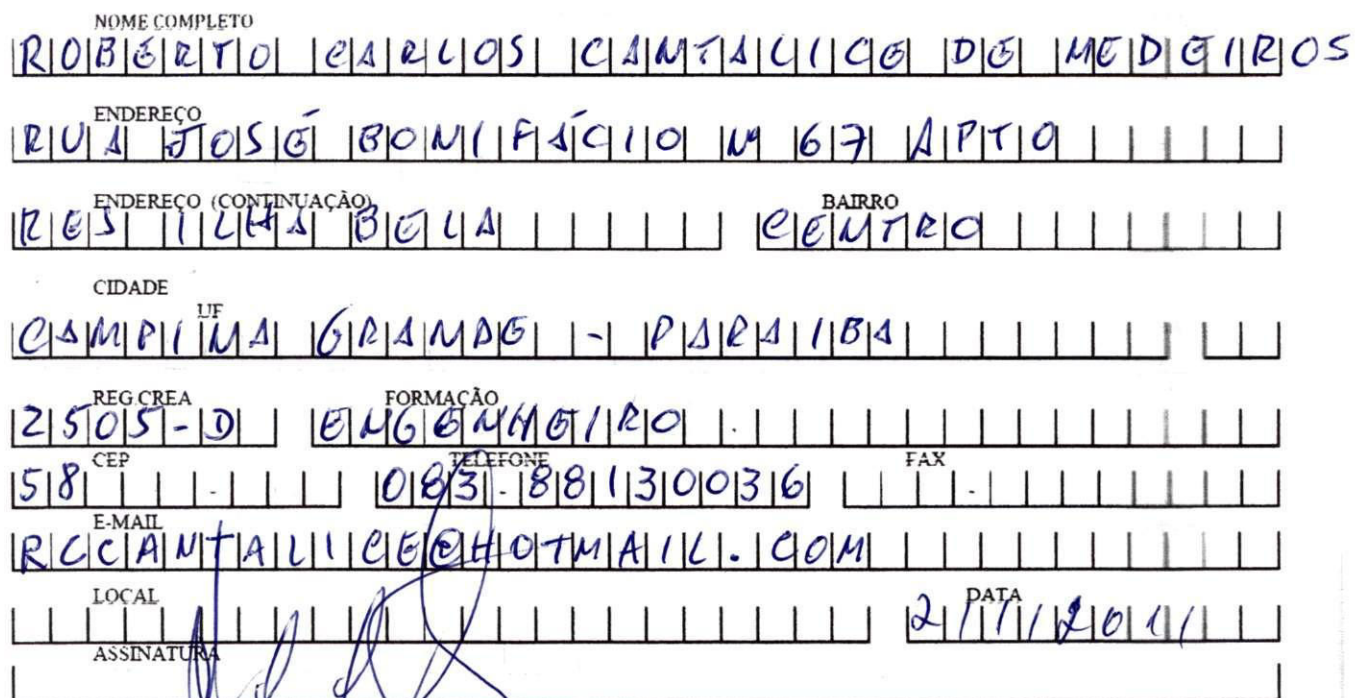 NOME COMPLETO
ROBERTO CARLOS CANTALICE DE MEDEIROS
ENDEREÇO
RUA JOSÉ BONIFÁCIO Nº 67 APTO
ENDEREÇO (CONTINUAÇÃO) BAIRRO
RES ILHA BELA CENTRO
CIDADE
UF
CAMPINA GRANDE - PARAIBA
REG.CREA FORMAÇÃO
2505-D ENGENHEIRO
CEP TELEFONE FAX
58 083.88130036
E-MAIL
RCCANTALICE@HOTMAIL.COM
LOCAL DATA
2011
ASSINATURA